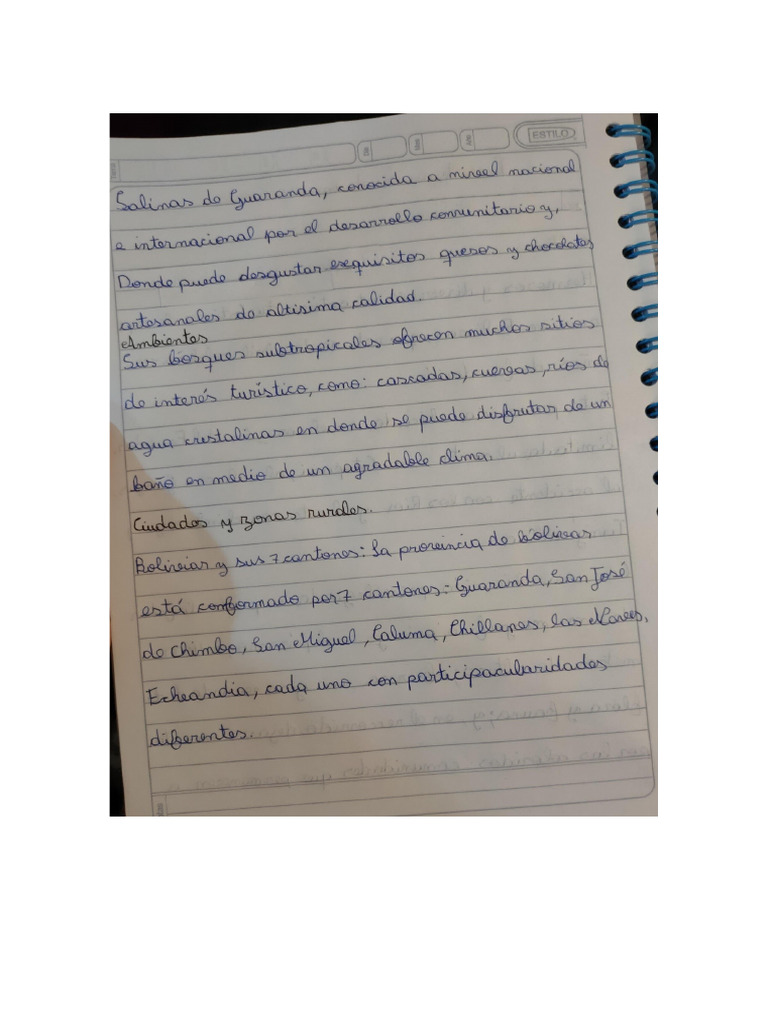 ESTILO
Salinas de Guaranda, conocida a nivel nacional
e internacional por el desarrollo comunitario y,
Donde puede desgustar exquisitos quesos y chocolates
artesanales de altisima calidad.
Ambientes
Sus bosques subtropicales ofrecen muchos sitios
de interés turístico, como: cascadas, cuevas, ríos de
agua cristalinas en donde se puede disfrutar de un
baño en medio de un agradable clima.
Ciudades y zonas rurales.
Bolivar y sus 7 cantones: La provincia de bolivar
está conformado por 7 cantones: Guaranda, San José
de Chimbo, San Miguel, Caluma, Chillanes, las Naves,
Echeandia, cada uno con participacularidades
diferentes.